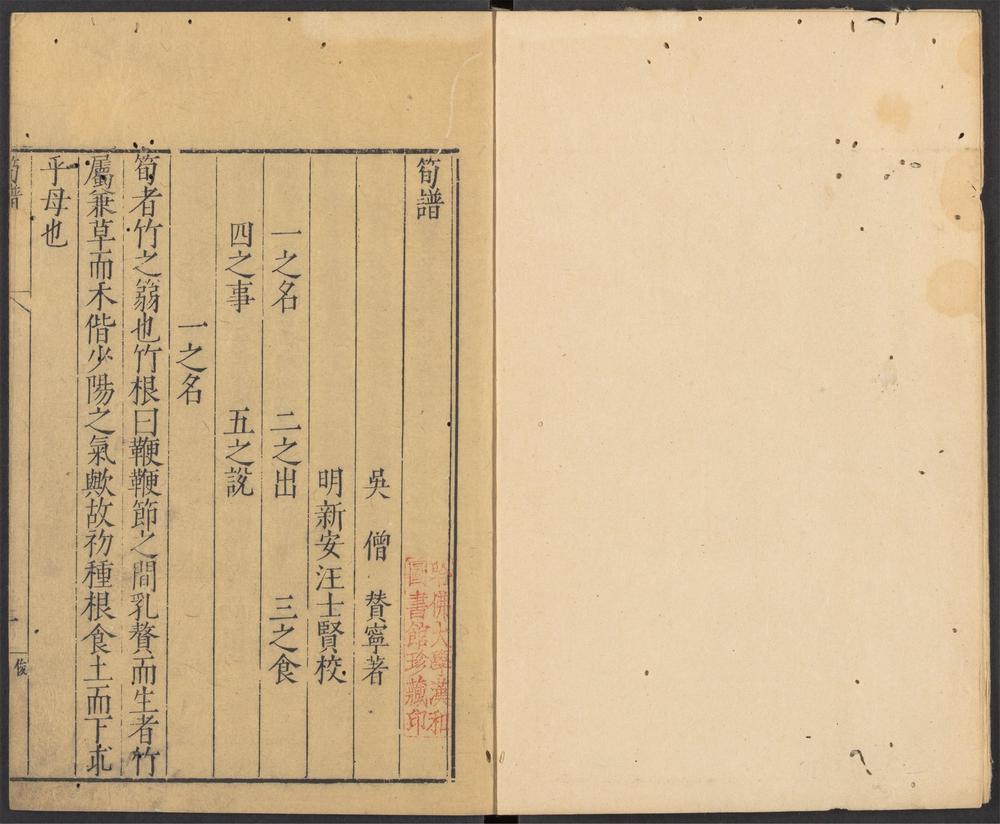 筍譜
吳僧贊寧著
明新安汪士賢校
一之名 二之出 三之食
四之事 五之說
一之名
筍者竹之篛也竹根曰鞭鞭節之間乳贅而生者竹
屬兼草而木偕少陽之氣歟故初種根食土而下求
乎母也
筍譜
俊
哈佛大學漢和
圖書館珍藏印